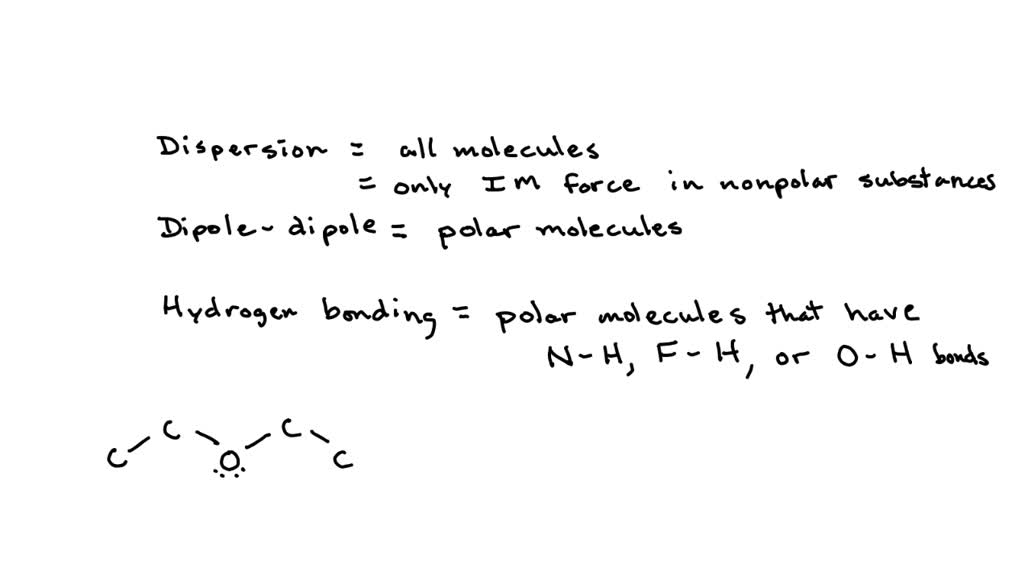 Dispersion = all molecules
= only IM force in nonpolar substances
Dipole-dipole = polar molecules
Hydrogen bonding = polar molecules that have
N-H, F-H, or O-H bonds
C C O C C